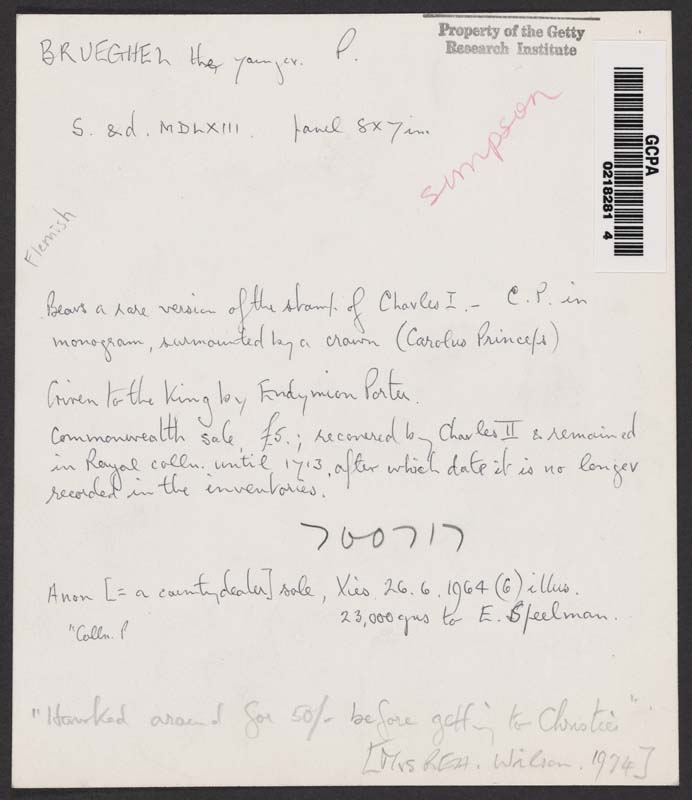 Property of the Getty
Research Institute
BRUEGHEL the younger. P.
S. &d. MDLXIII. panel 8x7in.
simpson
GCPA
0218281 4
Flemish
Bears a rare version of the stamp of Charles I. – C.P. in
monogram, surmounted by a crown (Carolus Princeps)
Given to the King by Endymion Porter.
Commonwealth sale, £5.; recovered by Charles II & remained
in Royal colln. until 1713, after which date it is no longer
recorded in the inventories.
700717
Anon [= a country dealer] sale, Xies, 26.6.1964 (6) illus.
23,000gns to E. Speelman.
"Colln. P
"Hawked around for 50/- before getting to Christies".
[Mrs Wilson. 1974]